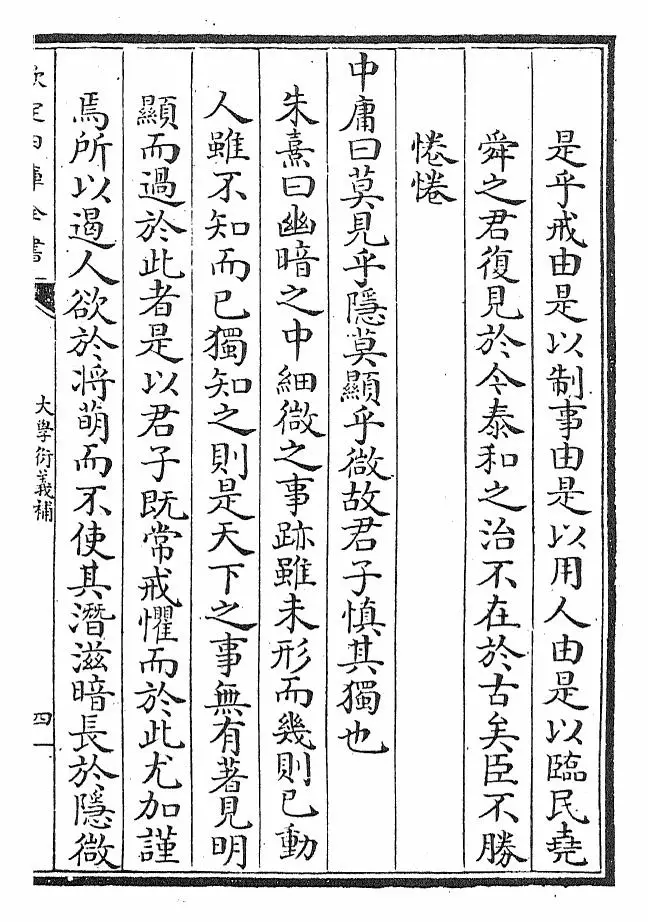 是乎戒由是以制事由是以用人由是以臨民堯
舜之君復見於今泰和之治不在於古矣臣不勝
惓惓
中庸曰莫見乎隱莫顯乎微故君子慎其獨也
朱熹曰幽暗之中細微之事跡雖未形而幾則已動
人雖不知而已獨知之則是天下之事無有著見明
顯而過於此者是以君子既常戒懼而於此尤加謹
焉所以遏人欲於將萌而不使其潛滋暗長於隱微
欽定四庫全書
大學衍義補
四